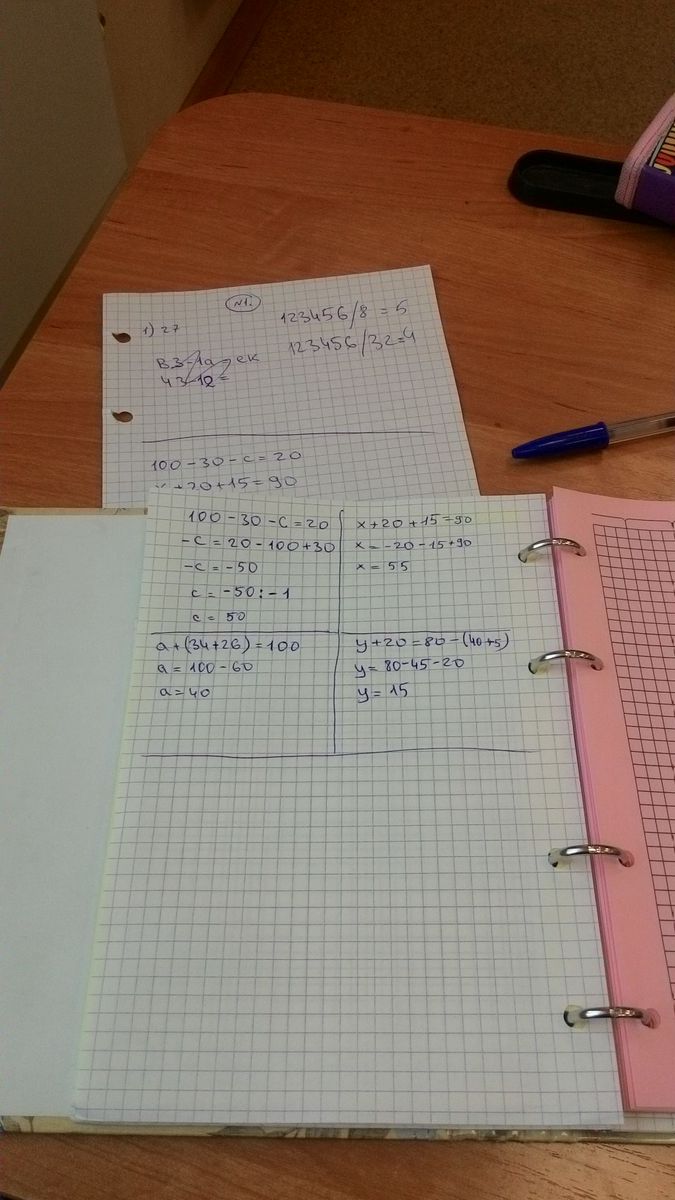 №1.
1) 27
123456/8 = 5
123456/32=4
В3-1а = ек
43-12=
100-30-с=20
x+20+15=90
100-30-с=20
-с=20-100+30
-с=-50
с=-50:-1
с=50
x+20+15=90
x=-20-15+90
x=55
a+(34+26)=100
a=100-60
a=40
y+20=80-(40+5)
y=80-45-20
y=15